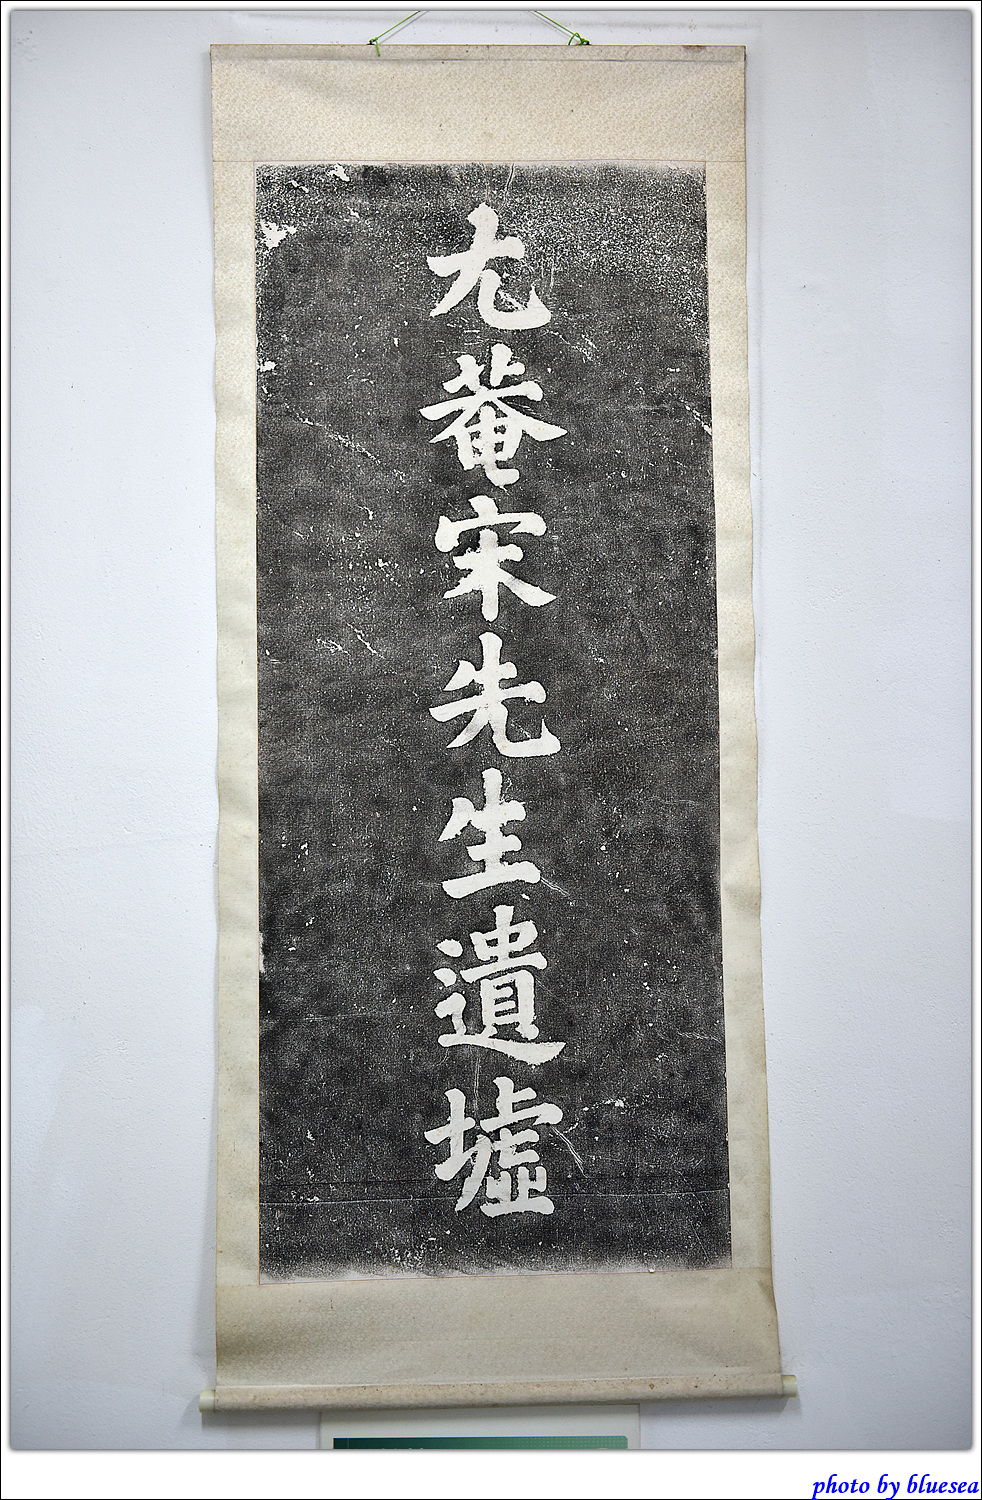 尤菴宋先生遺墟
photo by bluesea